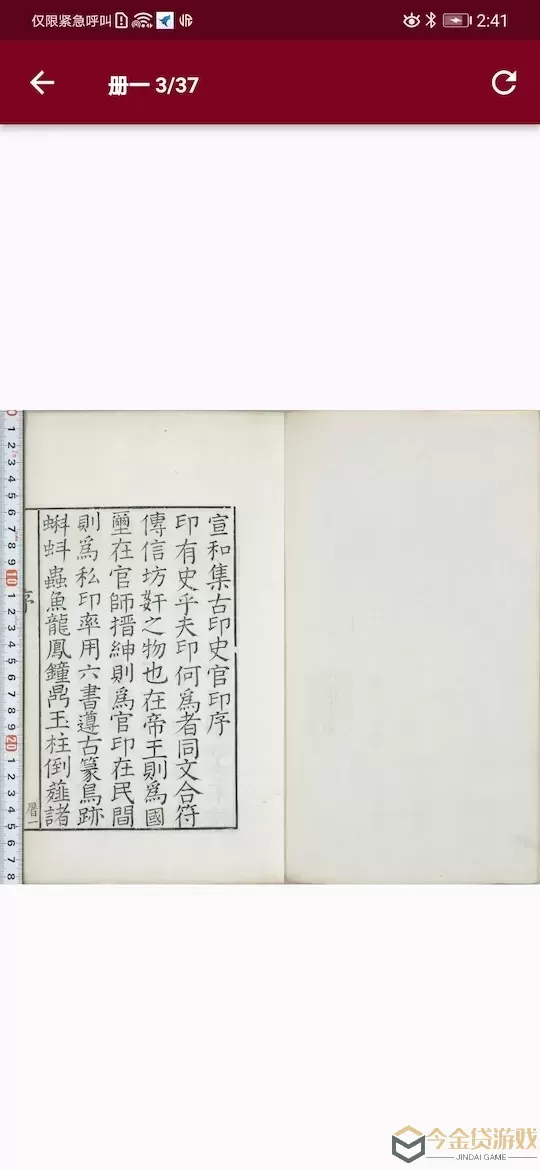 仅限紧急呼叫
2:41
册一 3/37
宣和集古印史官印序
印有史乎夫印何為者同文合符
傳信坊奸之物也在帝王則為國
壐在官師搢紳則為官印在民間
則為私印率用六書遵古篆鳥跡
蝌蚪蟲魚龍鳳鐘鼎玉柱倒薤諸
序
0
1
2
3
4
5
6
7
8
9
10
1
2
3
4
5
6
7
8
9
20
1
2
3
4
5
6
7
8
今金贷游戏
JINDAI GAME